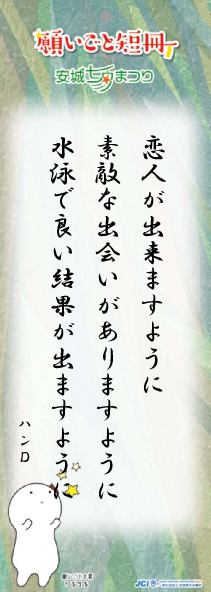 願いごと短冊
安城七夕まつり
恋人が出来ますように
素敵な出会いがありますように
水泳で良い結果が出ますように
ハンD
JCI